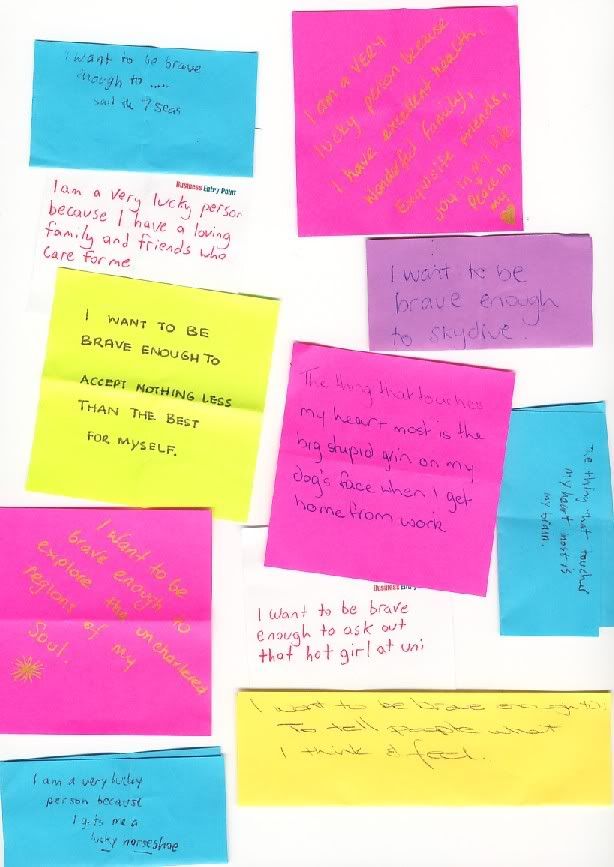 I want to be brave
enough to ....
sail the 7 seas
I am a VERY
lucky person because
I have excellent health,
Wonderful family,
Exquisite friends,
Joy in my life
+ Peace in
my
Business Entry Point
I am a very lucky person
because I have a loving
family and friends who
care for me
I want to be
brave enough
to skydive.
I WANT TO BE
BRAVE ENOUGH TO
ACCEPT NOTHING LESS
THAN THE BEST
FOR MYSELF.
The thing that touches
my heart most is the
big stupid grin on my
dog's face when I get
home from work
The thing that touches
my heart most is
my
I want to be
brave enough to
explore the unchartered
regions of my
Soul.
Business
I want to be brave
enough to ask out
that hot girl at uni
I want to be brave enough to:
To tell people what
I think & feel.
I am a very lucky
person because
I gots me a
lucky horseshoe